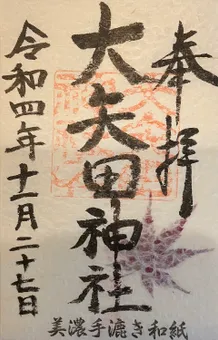 奉拝
大矢田神社
令和四年十一月二十七日
美濃手漉き和紙